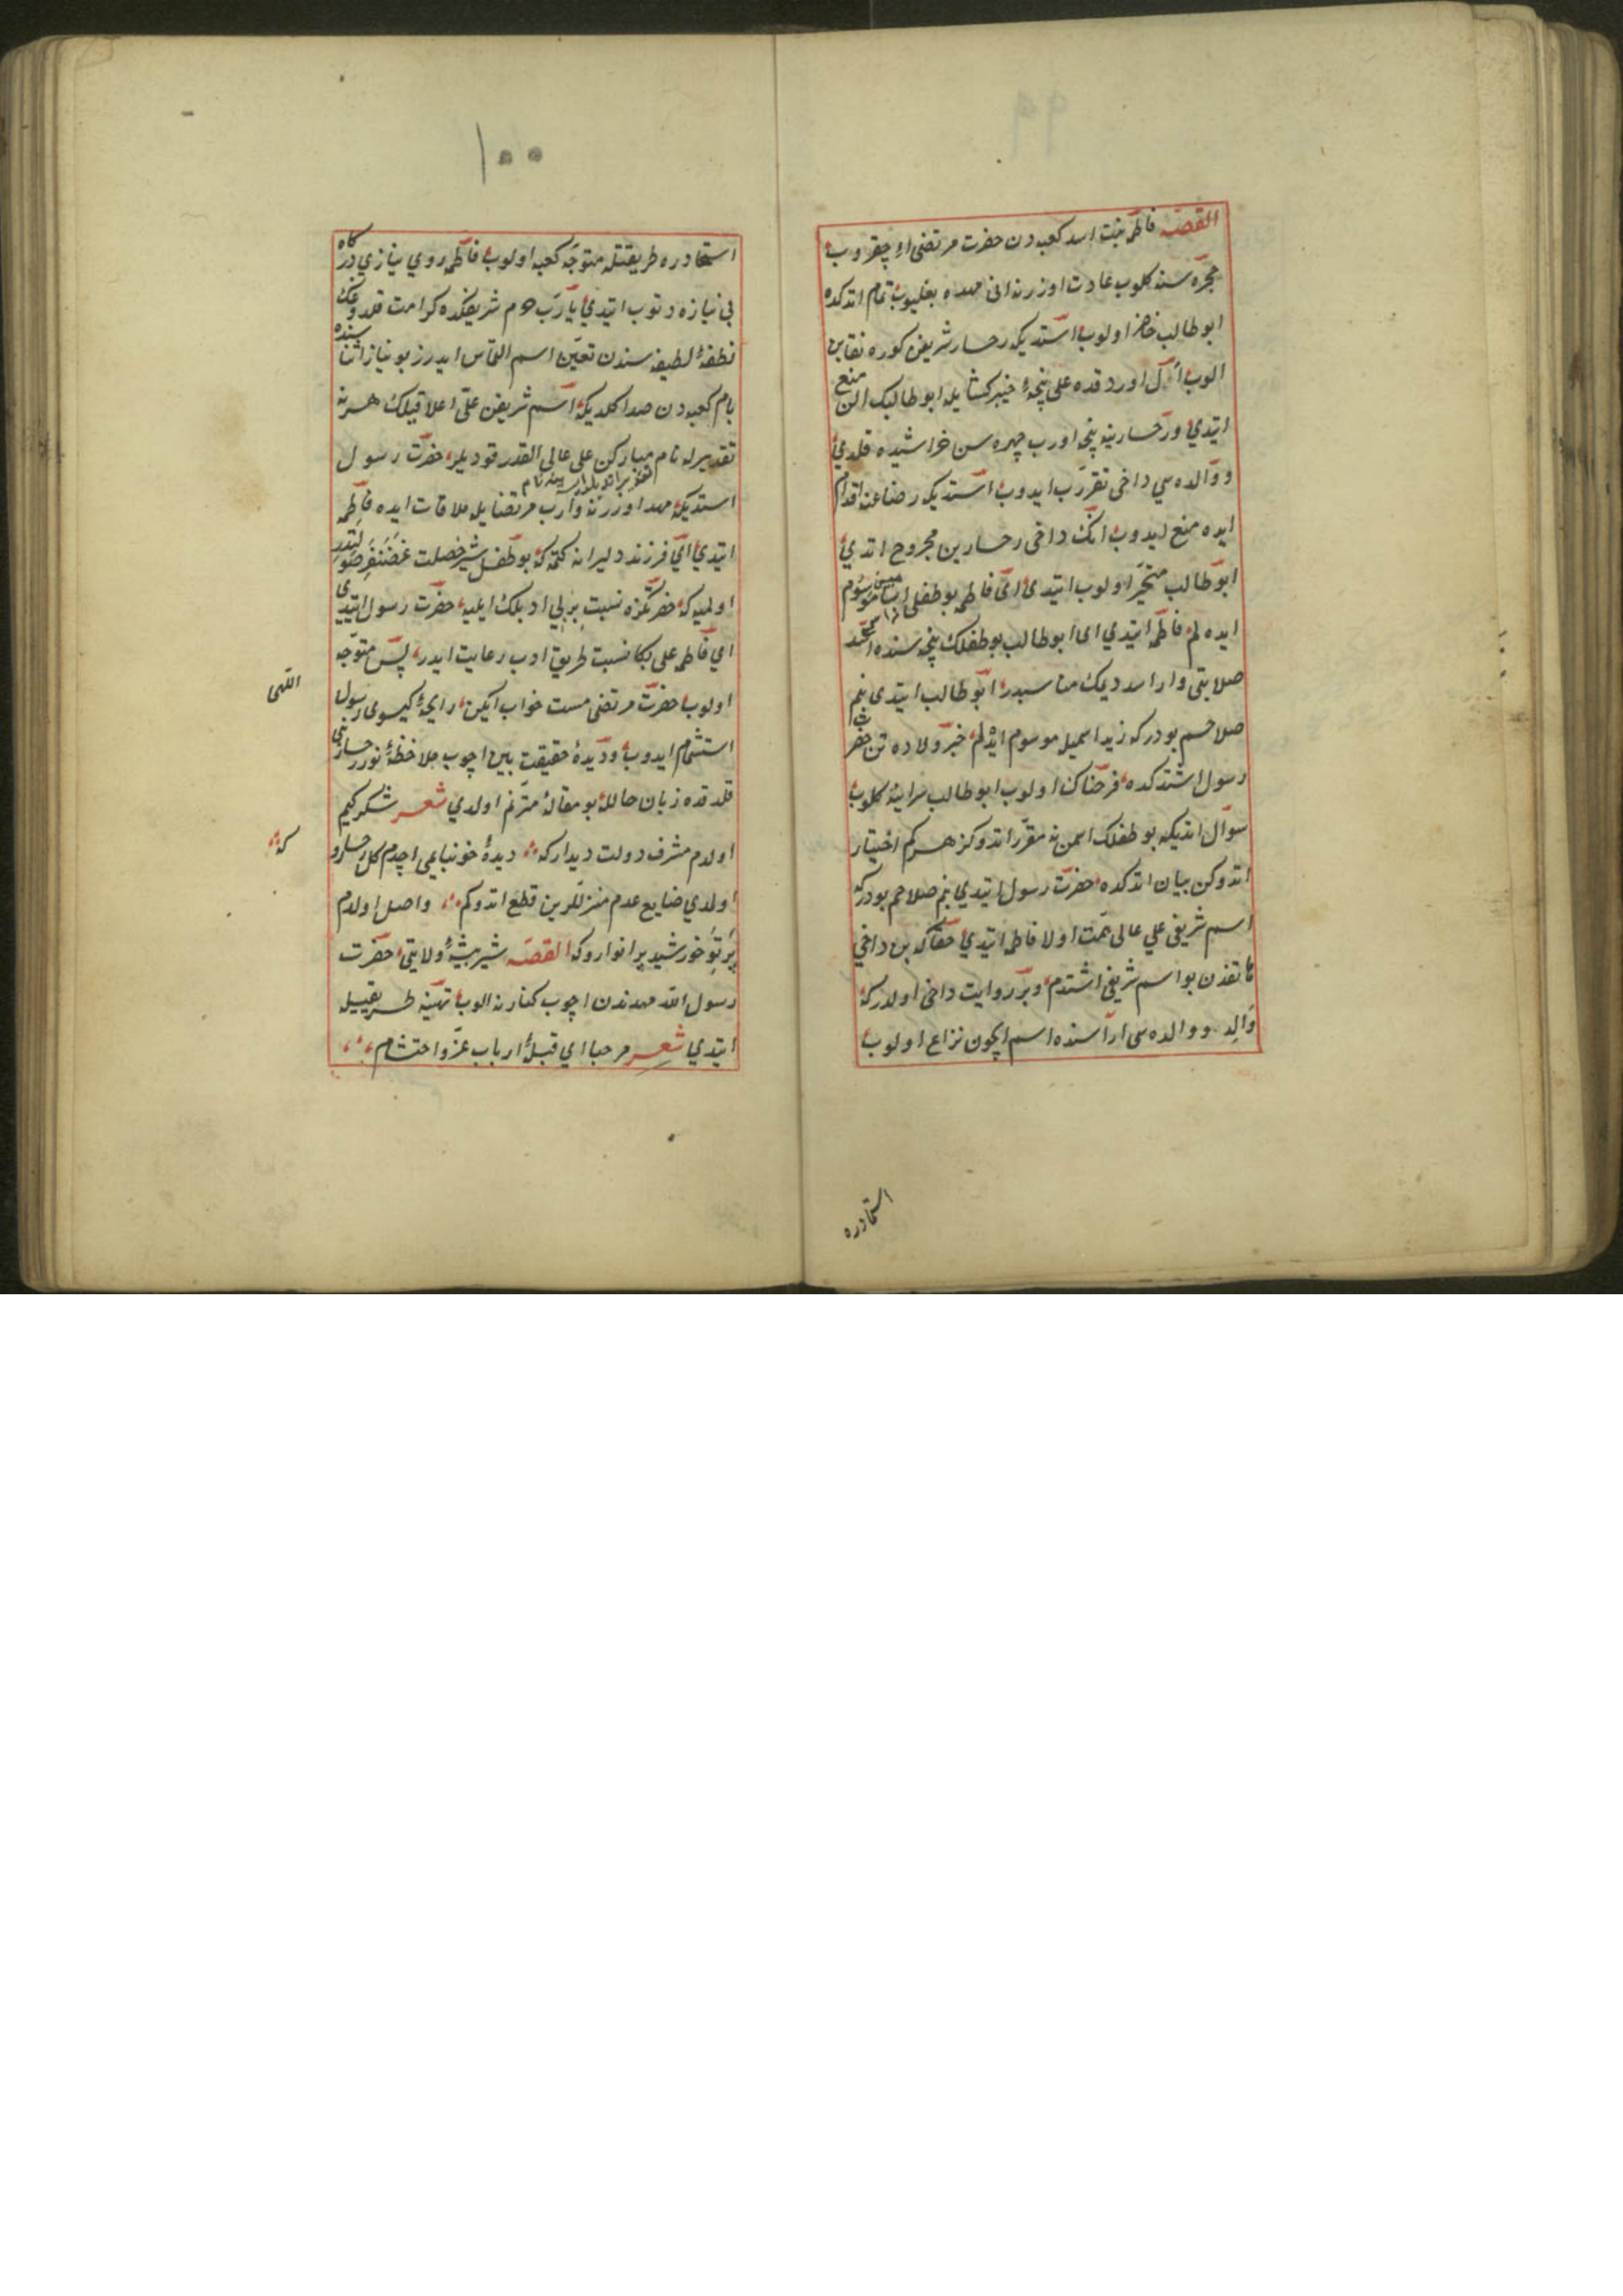 ٩٩
القصه فاطمه بنت اسد كعبه دن حضرت مرتضى اي چقروب
حجره سنه كلوب عادت اوزرنه انى مهده بغليوب تمام اتدكده
ابو طالب حاضر اولوب استديكه رخسار شريفن كوره نقابن
الوب ال اوردقده على پنجهٔ خيبر كشايله ابو طالبك الن منع
ايتدي ورخسارينه پنجه اورب چهره سن خراشيده قلدي
ووالده سي داخى تقرب ايدوب استديكه رضاعنه اقدام
ايده منع ايدوب انك داخى رخسارين مجروح اتدي
ابو طالب متحير اولوب ايتدى اى فاطمه بو طفلى موسوم
ايده لم فاطمه ايتدي اى ابو طالب بو طفلك پنجه سنده اسد
صلابتى وار اسد ديمك مناسبدر ابو طالب ايتدى بنم
صلاحم بودركه زيد اسميله موسوم ايده لم خبر ولادتن حضرت
رسول اشتدكده فرحناك اولوب ابو طالب سراينه كلوب
سوال اتديكه بو طفلك اسمن نه مقرر اتدوكز هركم اختيار
اتدوكن بيان اتدكده حضرت رسول ايتدي بنم صلاحم بودركه
اسم شريفى علي عالى همت اولا فاطمه ايتدي حقاكه بن داخي
هاتفدن بو اسم شريفى اشتدم وبر روايت داخى اولدركه
والد ووالده سى اراسنده اسم ايچون نزاع اولوب
استخاره
١٠٠
استخاره طريقتله متوجه كعبه اولوب فاطمه روي نيازي دركاه
بى نيازه دتوب ايتدي يا رب حرم شريفكده كرامت قلدوغك
نطفهٔ لطيفه سندن تعين اسم التماس ايدرز بو نياز اثناسنده
بام كعبه دن صدا كلديكه اسم شريفن على اعلا قيلك هر نه
تقديرله نام مباركن على عالى القدر قوديلر حضرت رسول
استديكه مهد اوزرنه وارب مرتضايله ملاقات ايده فاطمه
ايتدي اي فرزند دليرانه كتمه كه بو طفل شير خصلت غضنفر صولتدر
اولميه كه حضرتكزه نسبت بر بي ادبلك ايليه حضرت رسول ايتدى
اي فاطمه على بكا نسبت طريق ادب رعايت ايدر پس متوجه
اولوب حضرت مرتضى مست خواب ايكن رايحهٔ كيسوى رسول
اللهى
استشمام ايدوب وديدهٔ حقيقت بين اچوب ملاحظهٔ نور رخسارنى
قلدقده زبان حالله بو مقاله مترنم اولدي شعر شكر كيم
اولدم مشرف دولت ديداركه ديدهٔ خونبايمى اچدم كل رخساروكه
اولدي ضايع عدم منزللرين قطع اتدوكم واصل اولدم
پرتو خورشيد پر انواروكه القصه شير بيشهٔ ولايتى حضرت
رسول الله مهدندن اچوب كنارنه الوب تهنيه طريقيله
ايتدي شعر مرحبا اي قبلهٔ ارباب عز واحتشام